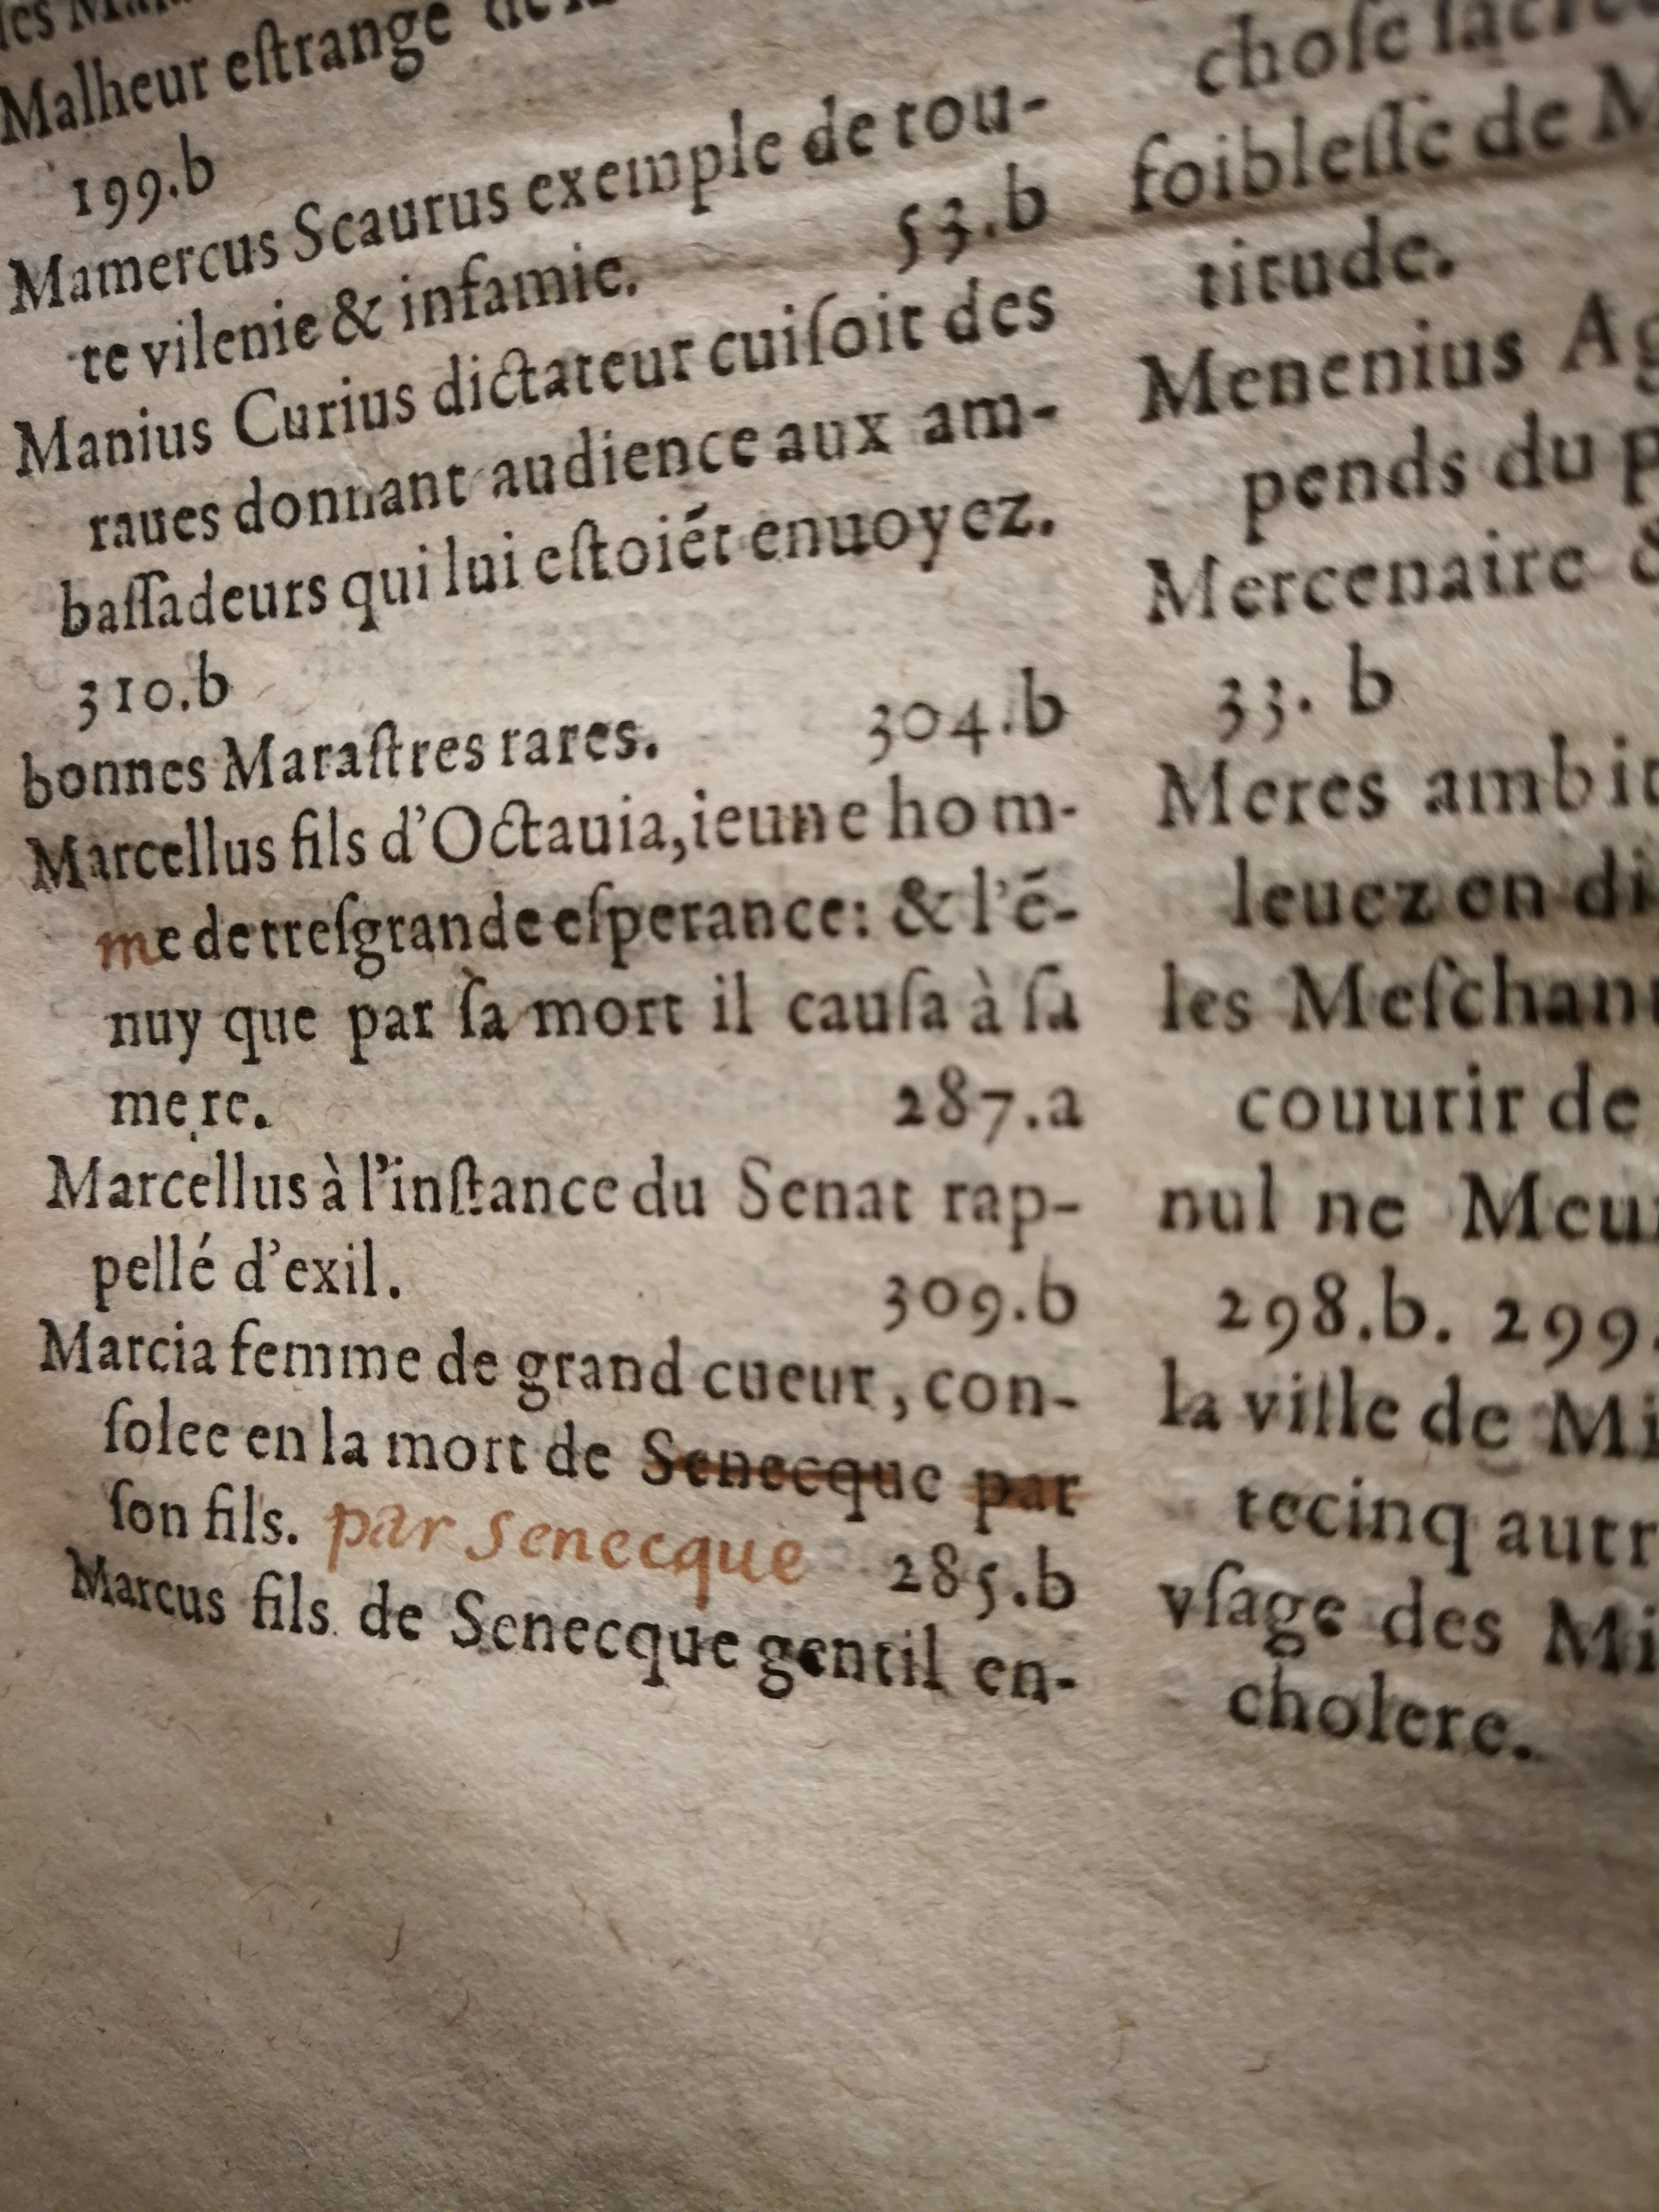 Malheur eſtrange
199.b
Mamercus Scaurus exemple de tou-
te vilenie & infamie. 53.b
Manius Curius dictateur cuiſoit des
raues donnant audience aux am-
baſſadeurs qui lui eſtoiẽt enuoyez.
310.b
bonnes Maraſtres rares. 304.b
Marcellus fils d'Octauia, ieune hom-
me de treſgrande eſperance: & l'ẽ-
nuy que par ſa mort il cauſa à ſa
mere. 287.a
Marcellus à l'inſtance du Senat rap-
pellé d'exil. 309.b
Marcia femme de grand cueur, con-
ſolee en la mort de Senecque par
ſon fils. par Senecque 285.b
Marcus fils de Senecque gentil en-
choſe
foibleſſe de
titude.
Menenius
pends du
Mercenaire
33. b
Meres
leuez en
les
couurir de
nul ne
298.b. 299.
la ville de
tecinq
vſage des
cholere.